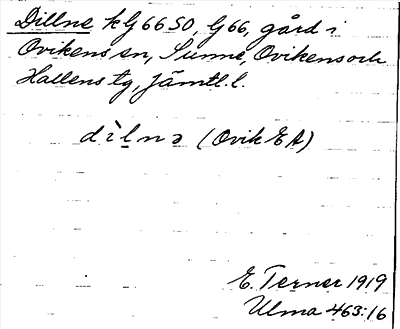 Dillne kG66SO, G66, gård i
Ovikens sn, Sunne, Ovikens och
Hallens tg, Jämtl. l.
dìlnə (Ovik EA)
E. Terner 1919
Ulma 463:16